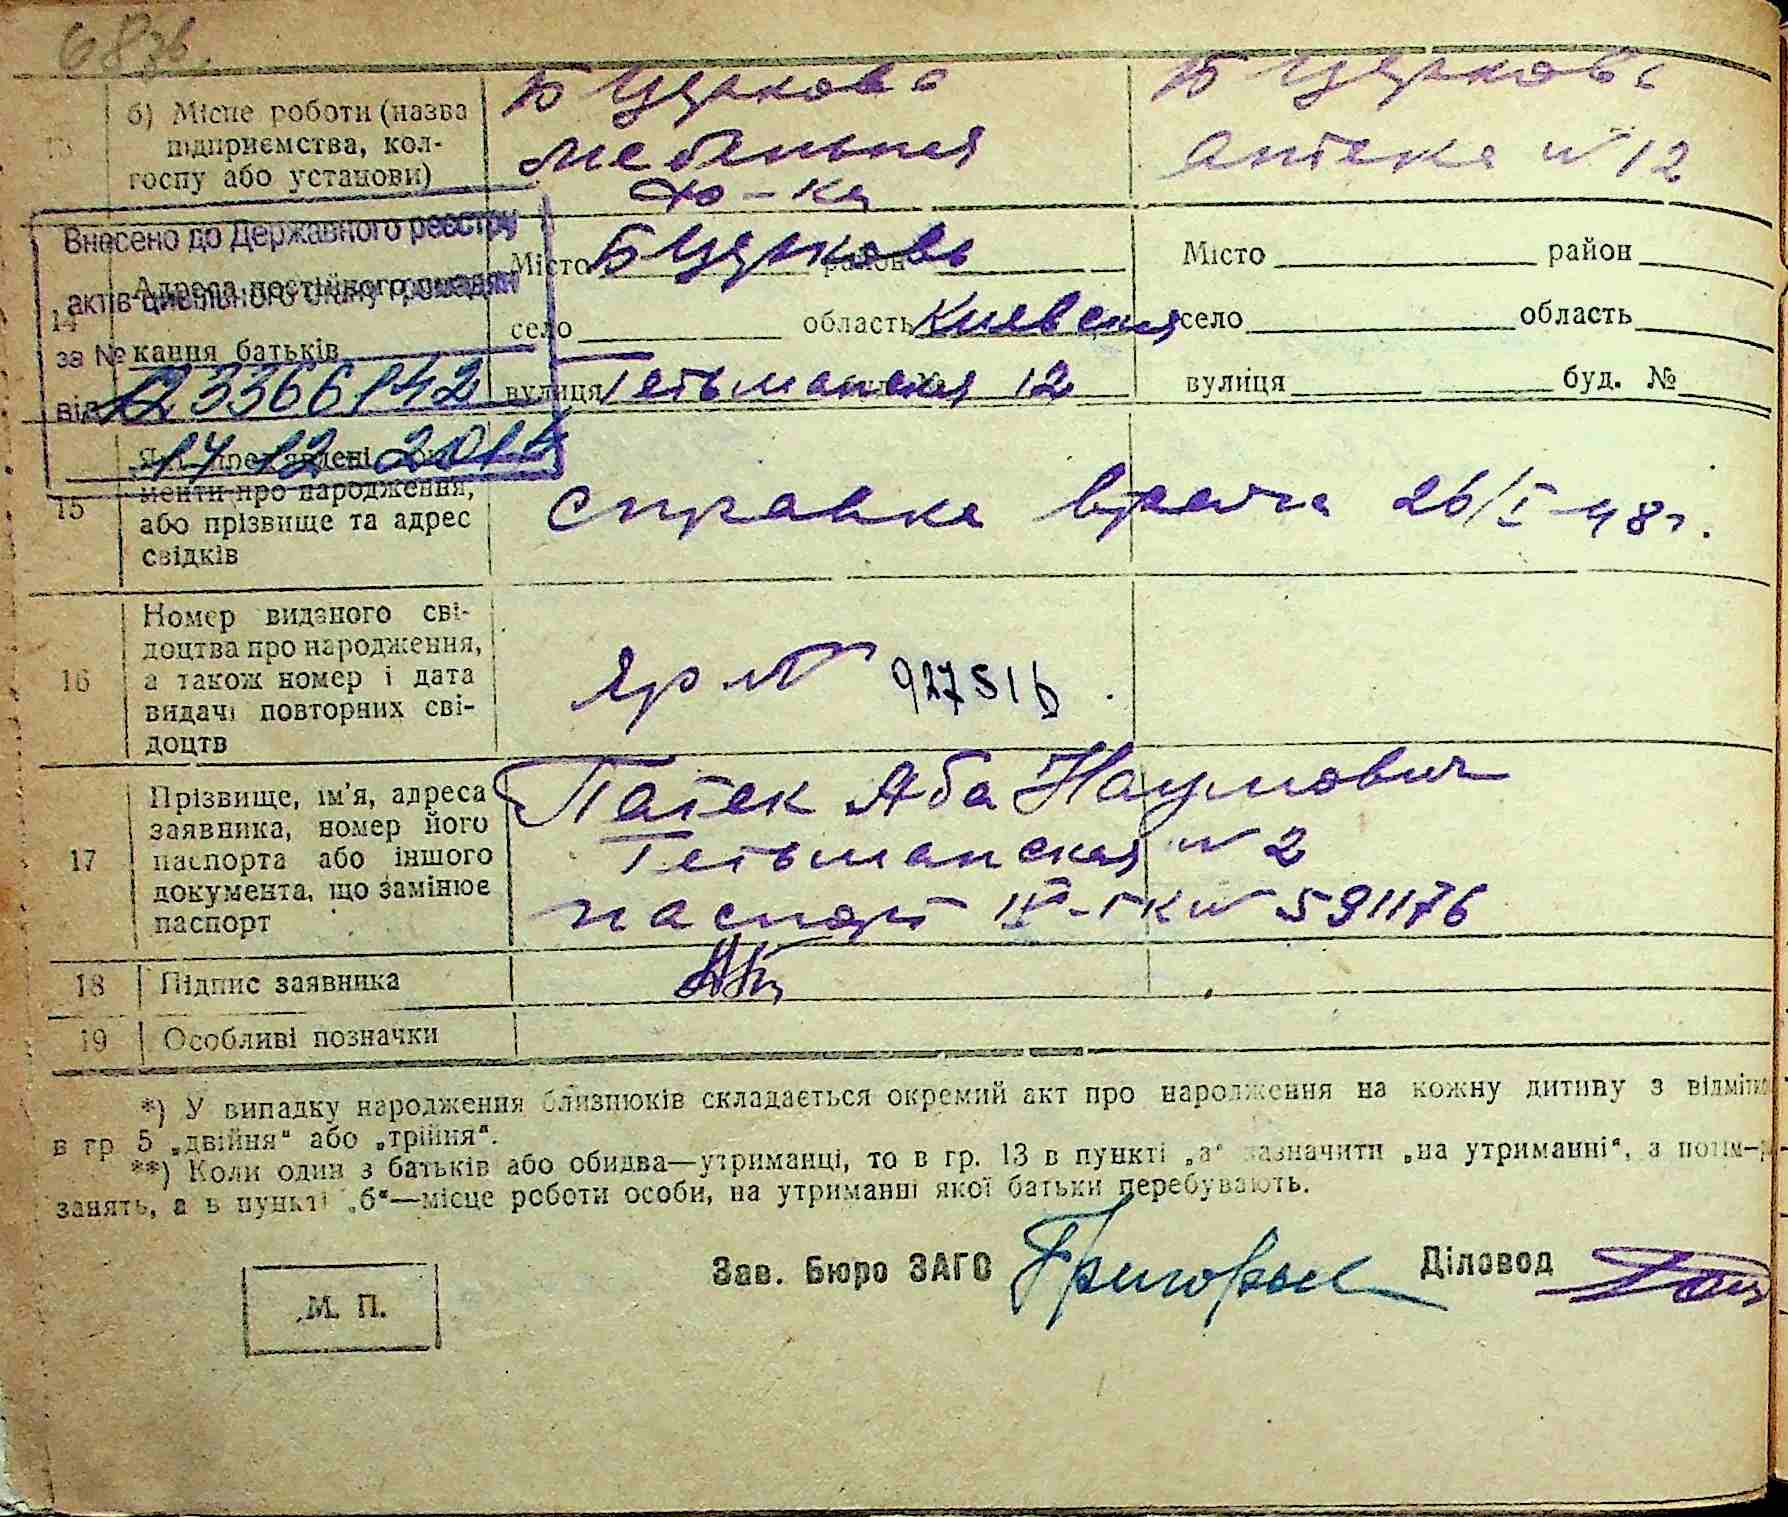 68 зв.
б) Місце роботи (назва
підприємства, кол-
госпу або установи)
Б Церковь
мебельная
ф-ка
Б Церковь
аптека № 12
Внесено до Державного реєстру
актів цивільного стану громадян
за №
від
14 12 201
14
Адреса постійного
кання батьків
Місто Б Церковь район
село область Киевская
вулиця Гетьманская 12
Місто район
село область
вулиця буд. №
15
менти про народження,
або прізвище та адрес
свідків
справка врача 26/I-48г.
16
Номер виданого сві-
доцтва про народження,
а також номер і дата
видачі повторних сві-
доцтв
ЯР № 927516.
17
Прізвище, ім'я, адреса
заявника, номер його
паспорта або іншого
документа, що замінює
паспорт
Патек Аба Наумович
Гетьманская № 2
паспорт № 591176
18
Підпис заявника
19
Особливі позначки
*) У випадку народження близнюків складається окремий акт про народження на кожну дитину з відмітко
в гр 5 „двійня“ або „трійня“.
**) Коли один з батьків або обидва—утриманці, то в гр. 13 в пункті „а“ зазначити „на утриманні“, а
занять, а в пункті „б“—місце роботи особи, на утриманні якої батьки перебувають.
Зав. Бюро ЗАГС
Діловод
М. П.